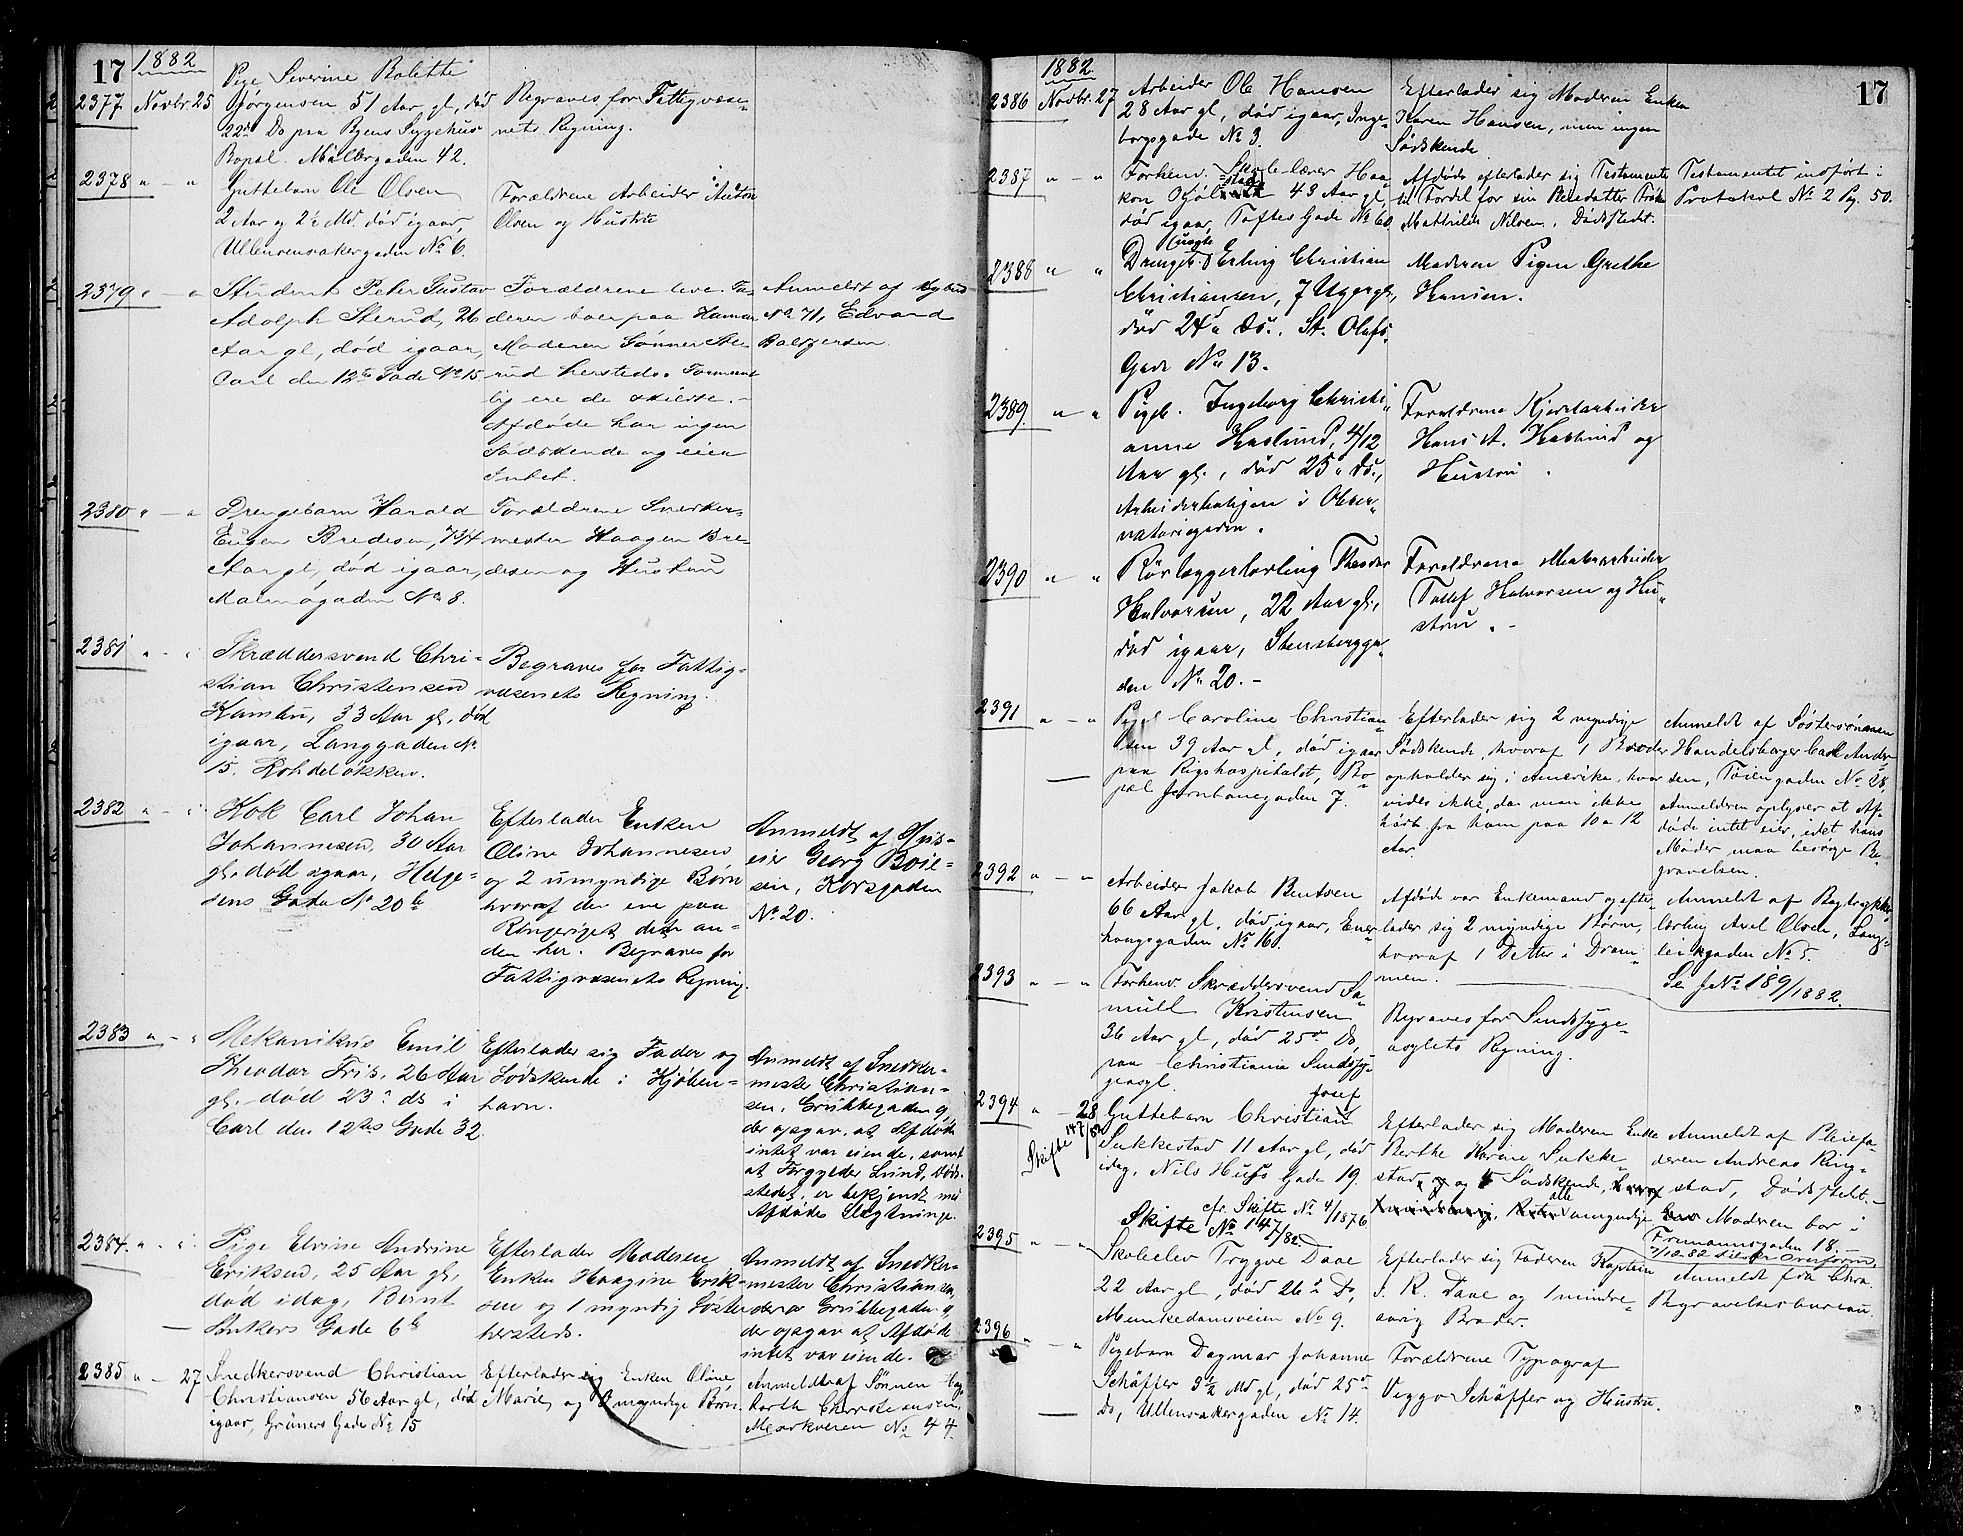 17
1882
2377 Novbr. 25
Pige Severine Bolette
Jörgensen 51 Aar gl, död
22de Ds paa Byens Sygehus
Bopæl. Möllergaden 42.
Begraves for Fattigvæse-
nets Regning.
2378 " — "
Guttebarn Ole Olsen
2 Aar og 2½ Md. död igaar,
Ullensvakergaden No 6.
Forældrene Arbeider Anton
Olsen og Hustru
2379 " — "
Student Peter Gustav
Adolph Sterud, 26
Aar gl, död igaar,
Carl den 12tes Gade No 15
Forældrene leve. Fa-
deren boer paa Hamar
Moderen Gönner Ste-
rud hersteds. Forment-
lig ere de skilte. -
Afdöde har ingen
Södskende og eier
Intet.
Anmeldt af Bybud
No 71, Edvard
2380 " — "
Drengebarn Harald
Eugen Bredesen, 7 1/4
Aar gl, död igaar,
Malmögaden No 8.
Forældrene Snedker-
mester Haagen Bre-
desen og Hustru
2381 " — "
Skræddersvend Chri-
stian Christensen
33 Aar gl, död
igaar, Langgaden No
15. Rohdelökken.
Begraves for Fattig-
væsenets Regning.
2382 " — "
Kok Carl Johan
Johannesen, 30 Aar
gl, död igaar, Helge-
sens Gade No 20b
Efterlader Enken
Oline Johannesen
og 2 umyndige Börn
hvoraf den ene paa
Ringeriget den an-
den her. Begraves for
Fattigvæsenets Regning.
Anmeldt af Gaard-
eier Georg Boie-
sen, Korsgaden
No 20.
2383 " — "
Mekanikus Emil
Theodor Fris, 26 Aar
gl, död 23de ds i
Carl den 12tes Gade 32.
Efterlader sig Fader og
Södskende i Kjöben-
havn.
Anmeldt af Snedker-
mester Christian-
sen, Grubbegaden 9,
der opgav, at Afdöde
intet var eiende, samt
at Lund, Döds-
stedet, er bekjendt med
Afdödes Slægtninge.
2384. " — "
Pige Elvine Andrine
Eriksen, 25 Aar gl,
död idag, Bernt
Ankers Gade 6b
Efterlader Moderen
Enken Haagine Erik-
sen og 1 myndig Söster
hersteds.
Anmeldt af Snedker-
mester Christiansen
Grubbegaden 9
der opgav at Afdöde
intet var eiende.
2385 " — 27
Snedkersvend Christian
Christiansen 56 Aar gl, död
igaar, Grüners Gade No 15
Efterlader sig Enken Oline
Marie og umyndige Börn.
Anmeldt af Sönnen
Christiansen,
Markveien No 44.
17
1882.
2386 Novbr. 27
Arbeider Ole Hansen
28 Aar gl, död igaar, Inge-
borgsgade No 3.
Efterlader sig Moderen Enken
Karen Hansen, men ingen
Södskende
2387 " — "
Forhenv. Skolelærer Haa-
kon 43 Aar gl,
död igaar, Toftes Gade No 60
Afdöde efterlader sig Testamente
til Fordel for sin Pleiedatter Fröken
Mathilde Nilsen, Dödsstedet.
Testamentet indfört i
Protokol No 2 Pg. 50.
2388 " "
Drengeb. uægte Erling Christian
Christiansen, 7 Uger gl,
död 24de Ds., St. Olafs
Gade No 13.
Moderen Pigen Grethe
Hansen.
2389. " "
Pigeb. Ingeborg Christi-
anne Haslund, 4/12
Aar gl., död 25de Ds.,
Arbeiderboligen i Obser-
vatoriegaden.
Forældrene
Hans A. Haslund og
Hustru.
2390 " "
Rörlæggerlærling Theodor
Halvorsen, 22 Aar gl,
död igaar, Stensbergga-
den No 20. -
Forældrene
Tollef Halvorsen og Hu-
stru. -
2391 " — "
Pige Caroline Christian-
sen 39 Aar gl, död igaar
paa Rigshospitalet, Bo-
pæl Jernbanegaden 7.
Efterlader sig 2 myndige
Södskende, hvoraf 1 Broder
opholder sig i Amerika, hvor
vides ikke, da man ikke
hört fra ham paa 10 a 12
Aar.
Anmeldt af Söstersönnen
Handelsborger Carl Ander-
sen, Töiengaden No 28,
Anmelderen oplyser at Af-
döde intet eier, idet hans
Moder maa besörge Be-
gravelsen.
2392 " — "
Arbeider Jakob Bentsen
66 Aar gl, död igaar, Ener-
haugsgaden No 16.
Afdöde var Enkemand og efter-
lader sig 2 myndige Börn,
hvoraf 1 Datter i Dram-
men.
Anmeldt af Bogtrykker-
lærling Axel Olsen, Lang-
leikgaden No 5.
Se J No 189/1882.
2393 " — "
Forhenv. Skræddersvend Sa-
muel Kristensen
36 Aar gl, död 25de Ds,
paa Christiania Sindssyge-
geasyl.
Begraves for Sindssyge-
asylets Regning.
2394 " — 28
Skifte 147/82
Guttebarn Christian Josef
Sukkestad 11 Aar gl, död
idag, Nils Hufs Gade 19.
cfr. Skifte No 4/1876
Skifte No 147/82.
Efterlader sig Moderen Enke
Berthe Karine Sukke-
stad, og Södskende,
alle umyndige
Anmeldt af Pleiefa-
deren Andreas Ring-
stad, Dödsstedet. -
Moderen bor i
Fremannsgaden 18. -
2395 " — "
Skoleelev Trygve Daae
22 Aar gl, död 26de Ds,
Munkedamsveien No 9.
Efterlader sig Faderen Kaptein
J. R. Daae og 1 mindre-
aarig Broder.
Anmeldt fra Chra.
Begravelsesbureau.
2396 " — "
Pigebarn Dagmar Johanne
Schäffer 3½ Md gl, död 25de
Ds, Ullensakergaden No 14.
Forældrene Typograf
Viggo Schäffer og Hustru.